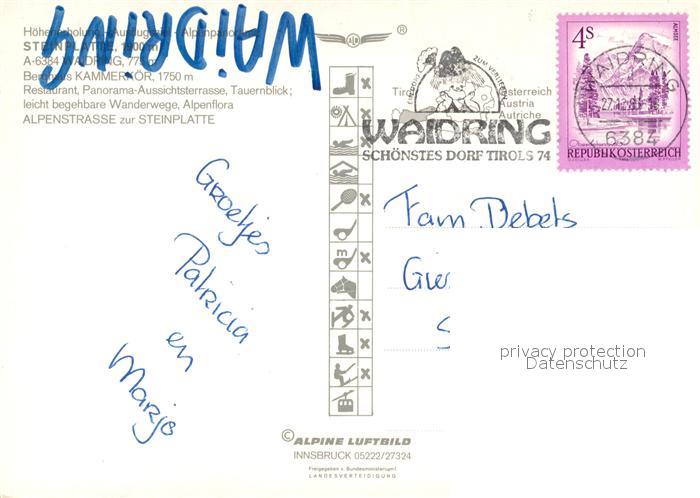 WAIDRING
Höhenerholung - Ausflugsziel - Alpenpanorama
STEINPLATTE, 1900 m
A-6384 WAIDRING, 775 m
Berghaus KAMMERKÖR, 1750 m
Restaurant, Panorama-Aussichtsterrasse, Tauernblick;
leicht begehbare Wanderwege, Alpenflora
ALPENSTRASSE zur STEINPLATTE
Groetjes
Patricia
en
Marjo
m
Tirol
Österreich
Austria
Autriche
ZUM VERLIEBEN
WAIDRING
SCHÖNSTES DORF TIROLS 74
4S
ALMSEE
REPUBLIK ÖSTERREICH
WAIDRING
6384
Fam Debets
privacy protection
Datenschutz
© ALPINE LUFTBILD
INNSBRUCK 05222/27324
Freigegeben v. Bundesministerium f.
LANDESVERTEIDIGUNG